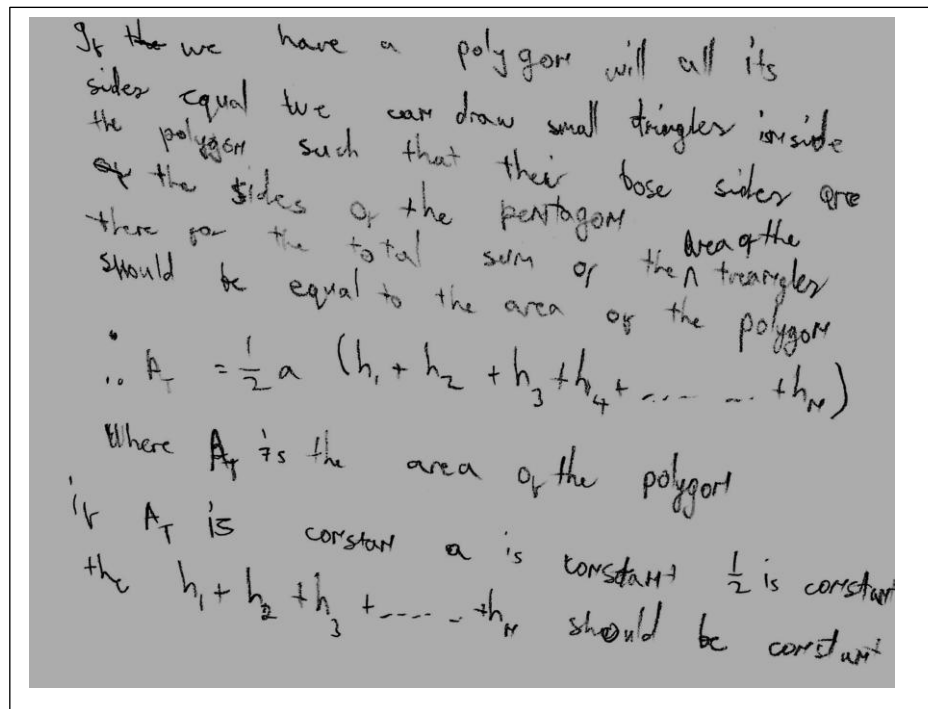 If we have a polygon will all its
sides equal we can draw small tringles inside
the polygon such that their base sides are
the sides of the pentagon
there for the total sum of the area of the treangles
should be equal to the area of the polygon
∴ A_T = 1/2 a (h_1 + h_2 + h_3 + h_4 + ........ + h_n)
Where A_T is the area of the polygon
if A_T is constan a is constant 1/2 is constant
the h_1 + h_2 + h_3 + ...... + h_n should be constant